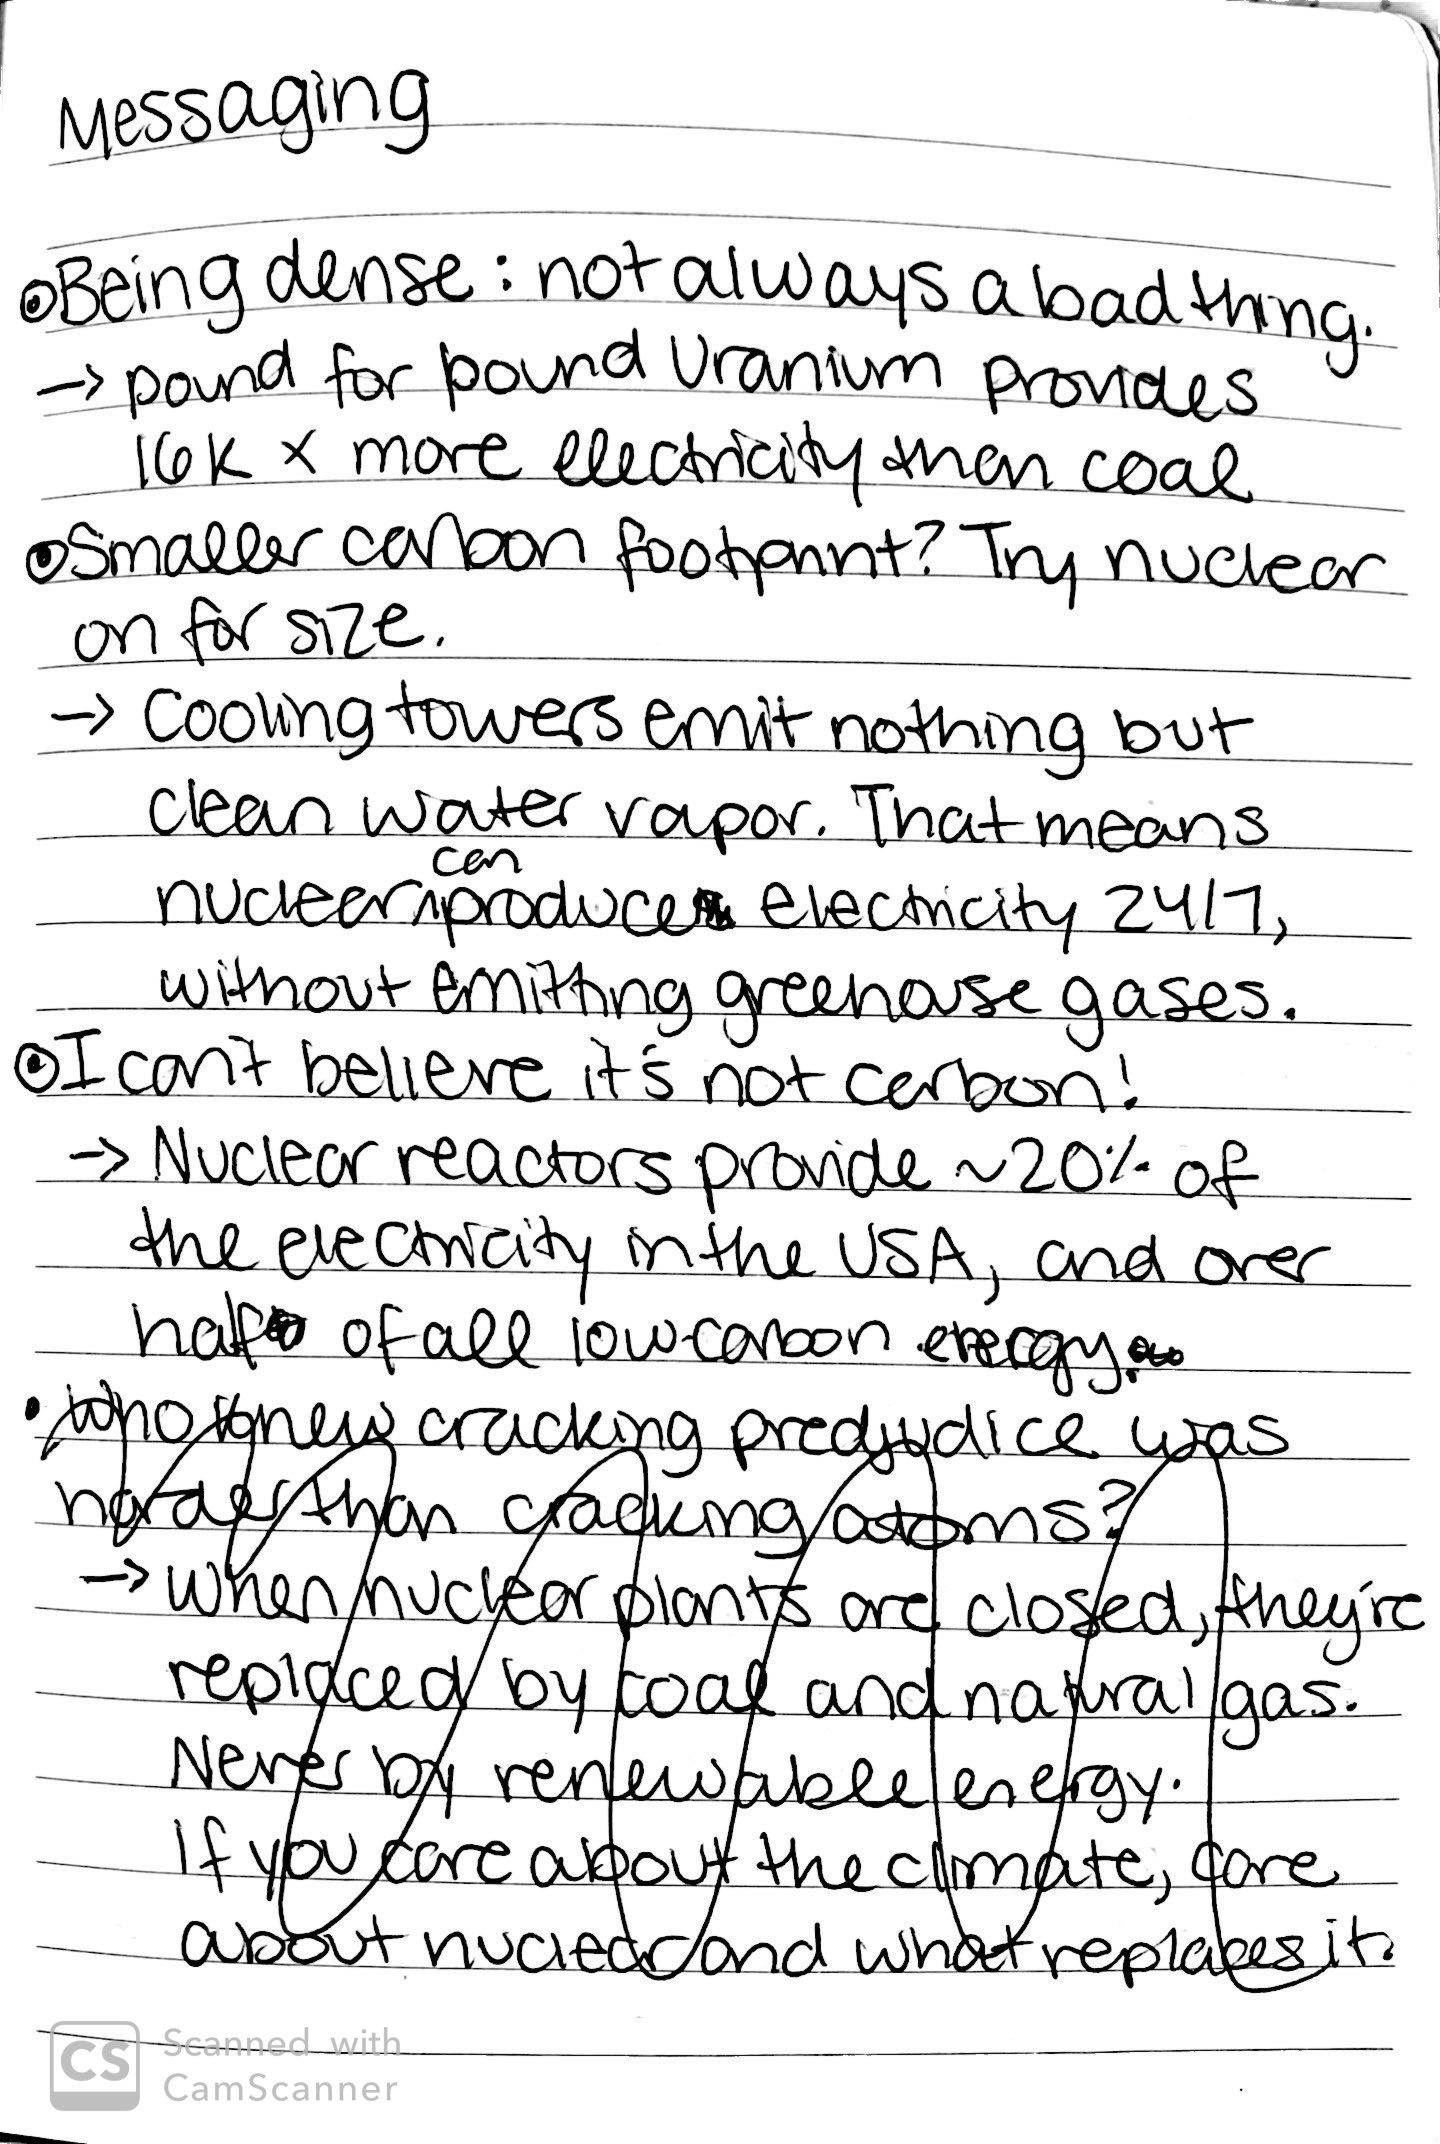 Messaging
Being dense: not always a bad thing.
→ pound for pound Uranium provides
16K x more electricity than coal
Smaller carbon footprint? Try nuclear
on for size.
→ Cooling towers emit nothing but
clean water vapor. That means
can
nuclear produce electricity 24/7,
without emitting greenhouse gases.
I can't believe it's not carbon!
→ Nuclear reactors provide ~20% of
the electricity in the USA, and over
half of all low-carbon energy.
• Who knew cracking predjudice was
harder than cracking atoms?
→ When nuclear plants are closed, they're
replaced by coal and natural gas.
Never by renewable energy.
If you care about the climate, care
about nuclear and what replaces it.
CS Scanned with
CamScanner